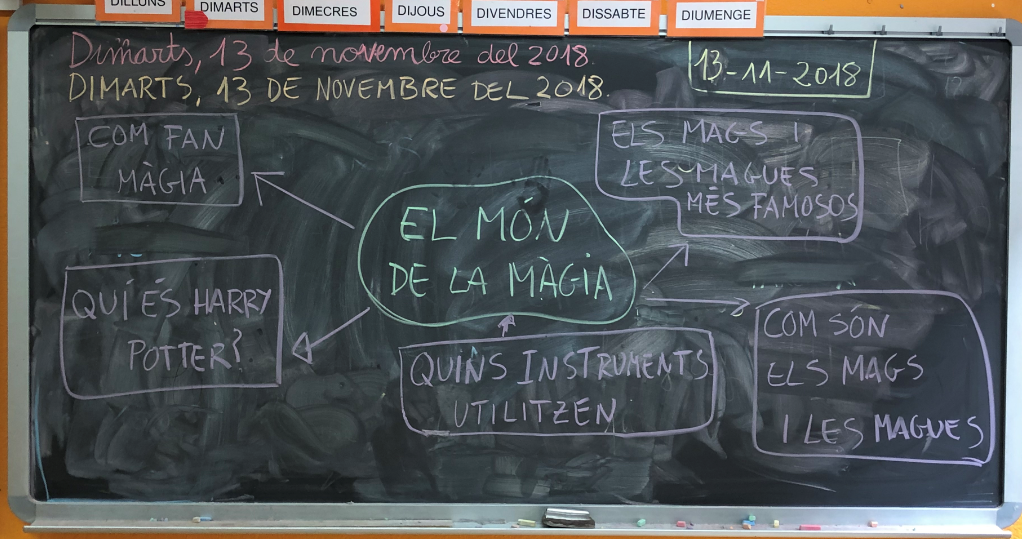 DILLUNS DIMARTS DIMECRES DIJOUS DIVENDRES DISSABTE DIUMENGE
Dimarts, 13 de novembre del 2018.
DIMARTS, 13 DE NOVEMBRE DEL 2018.
13-11-2018
COM FAN
MÀGIA
ELS MAGS I
LES MAGUES
MÉS FAMOSOS
EL MÓN
DE LA MÀGIA
QUI ÉS HARRY
POTTER?
QUINS INSTRUMENTS
UTILITZEN
COM SÓN
ELS MAGS
I LES MAGUES